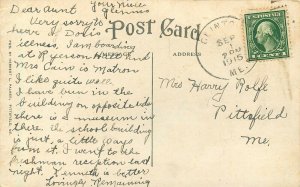 Your niece
Glenna
Dear Aunt
Very sorry to
hear of Doris
illness. I am boarding
at Ryerson Hall and
Mrs Cain is Matron
I like quite well.
I have been in the
building on opposite side
there is a museum in
there. the school building
is just a little ways
from it. I went to the
freshman reception last
night. Kenneth is better
Lovingly Remaining
Post Card
ADDRESS
CLINTON
SEP
1915
ME.
Mrs Harry Rolfe
Pittsfield
Me.